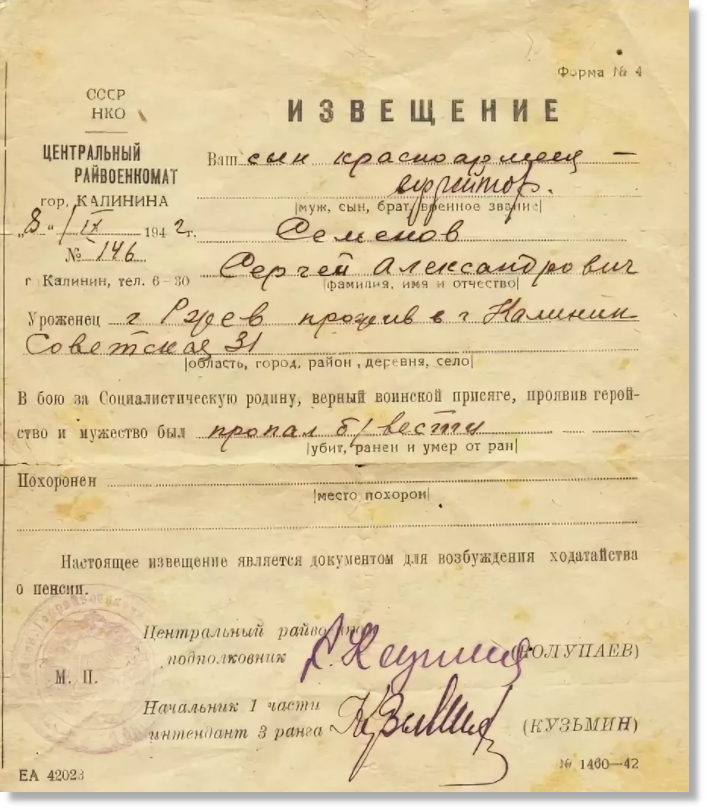 Форма № 4
СССР
НКО
ИЗВЕЩЕНИЕ
ЦЕНТРАЛЬНЫЙ
РАЙВОЕНКОМАТ
гор. КАЛИНИНА
Ваш сын красноармеец –
ефрейтор.
|муж, сын, брат, военное звание|
„8"/IX 1942г.
№ 146
г Калинин, тел. 6-30
Семенов
Сергей Александрович
|фамилия, имя и отчество|
Уроженец г Ржев прожив в г Калинин
Советская 31
|область, город, район, деревня, село|
В бою за Социалистическую родину, верный воинской присяге, проявив герой-
ство и мужество был пропал б/вести
|убит, ранен и умер от ран|
Похоронен
|место похорон|
Настоящее извещение является документом для возбуждения ходатайства
о пенсии.
Центральный
подполковник (КОЛУПАЕВ)
М. П.
Начальник 1 части
интендант 3 ранга (КУЗЬМИН)
ЕА 42023
№ 1460—42